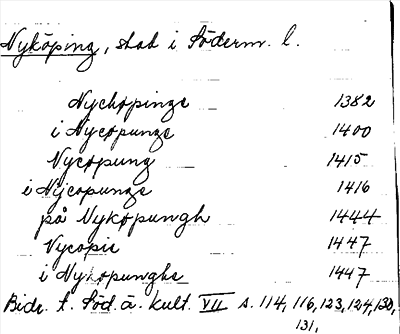 Nyköping, stad i Söderm. l.
Nychopinge 1382
i Nycopunge 1400
Nycopung 1415
i Nycopunge 1416
på Nykopungh 1444
Vycopie 1447
i Nykopunghe 1447
Bidr. t. Söd. ä. kult. VII s. 114, 116, 123, 124, 130,
131,